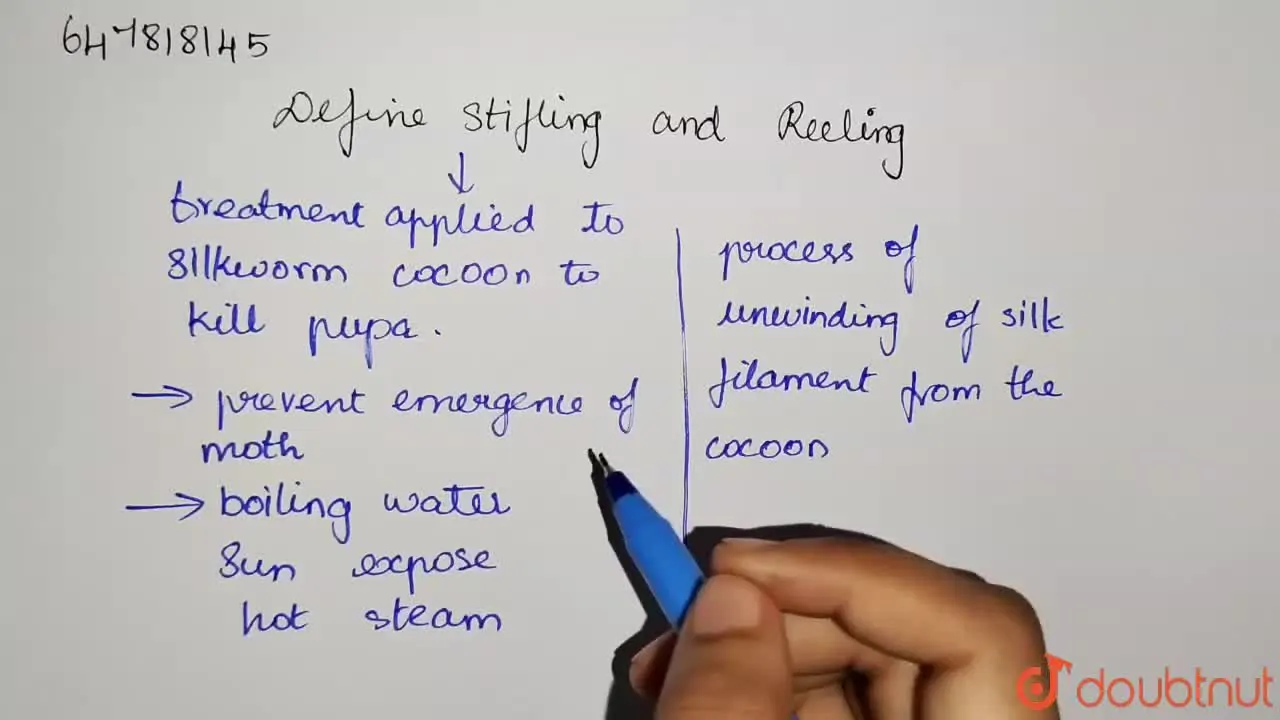 647818145
Define stifling and Reeling
treatment applied to
silkworm cocoon to
kill pupa.
→ prevent emergence of
moth
→ boiling water
Sun expose
hot steam
process of
unwinding of silk
filament from the
cocoon
doubtnut